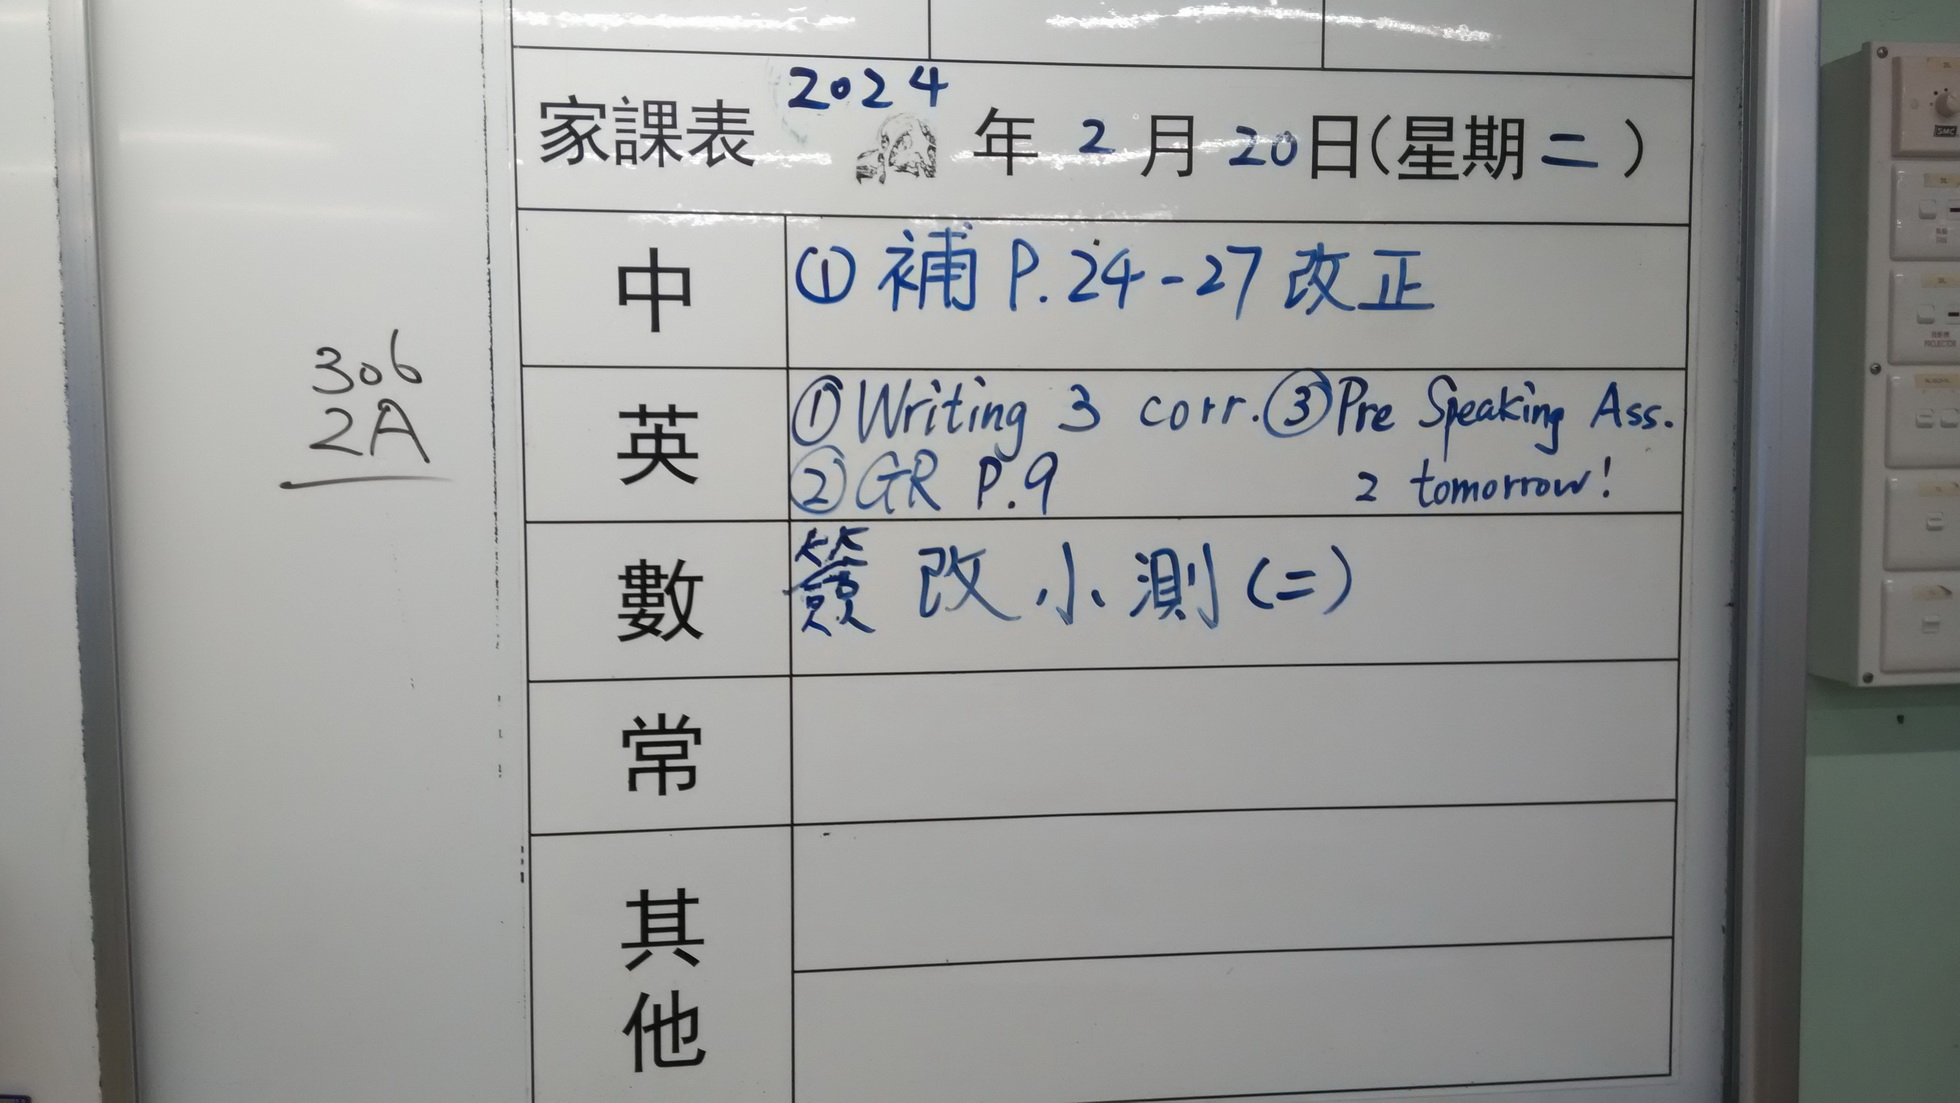 2024
家課表 年 2 月 20 日(星期二)
中 ① 補 P.24-27 改正
英 ① Writing 3 corr. ③ Pre Speaking Ass.
② GR P.9 2 tomorrow!
數 簽 改 小 測 (二)
常
其
他
306
2A